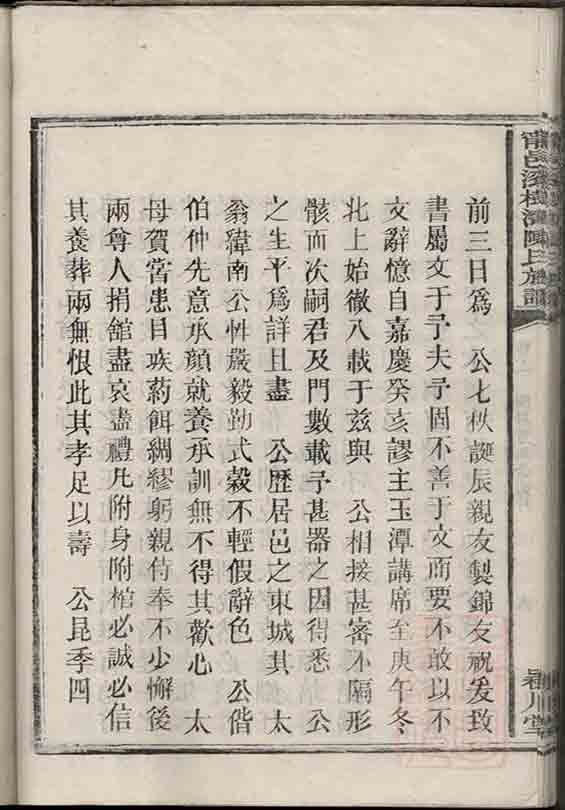 前三日爲　公七秩誕辰親友製錦友祝爰致
書屬文于予夫予固不善于文而要不敢以不
文辭憶自嘉慶癸亥謬主玉潭講席至庚午冬
北上始徹八載于兹與　公相接甚審不隔形
骸而次嗣君及門數載予甚器之因得悉　公
之生平爲詳且盡　公歷居邑之東城其　太
翁緯南公性嚴毅勤式穀不輕假辭色　公偕
伯仲先意承顔就養承訓無不得其歡心　太
母賀宫患目疾葯餌綢繆躬親侍奉不少懈後
兩尊人捐館盡哀盡禮凡附身附棺必誠必信
其養葬兩無恨此其孝足以壽　公昆季四
陳氏族譜
潁川堂